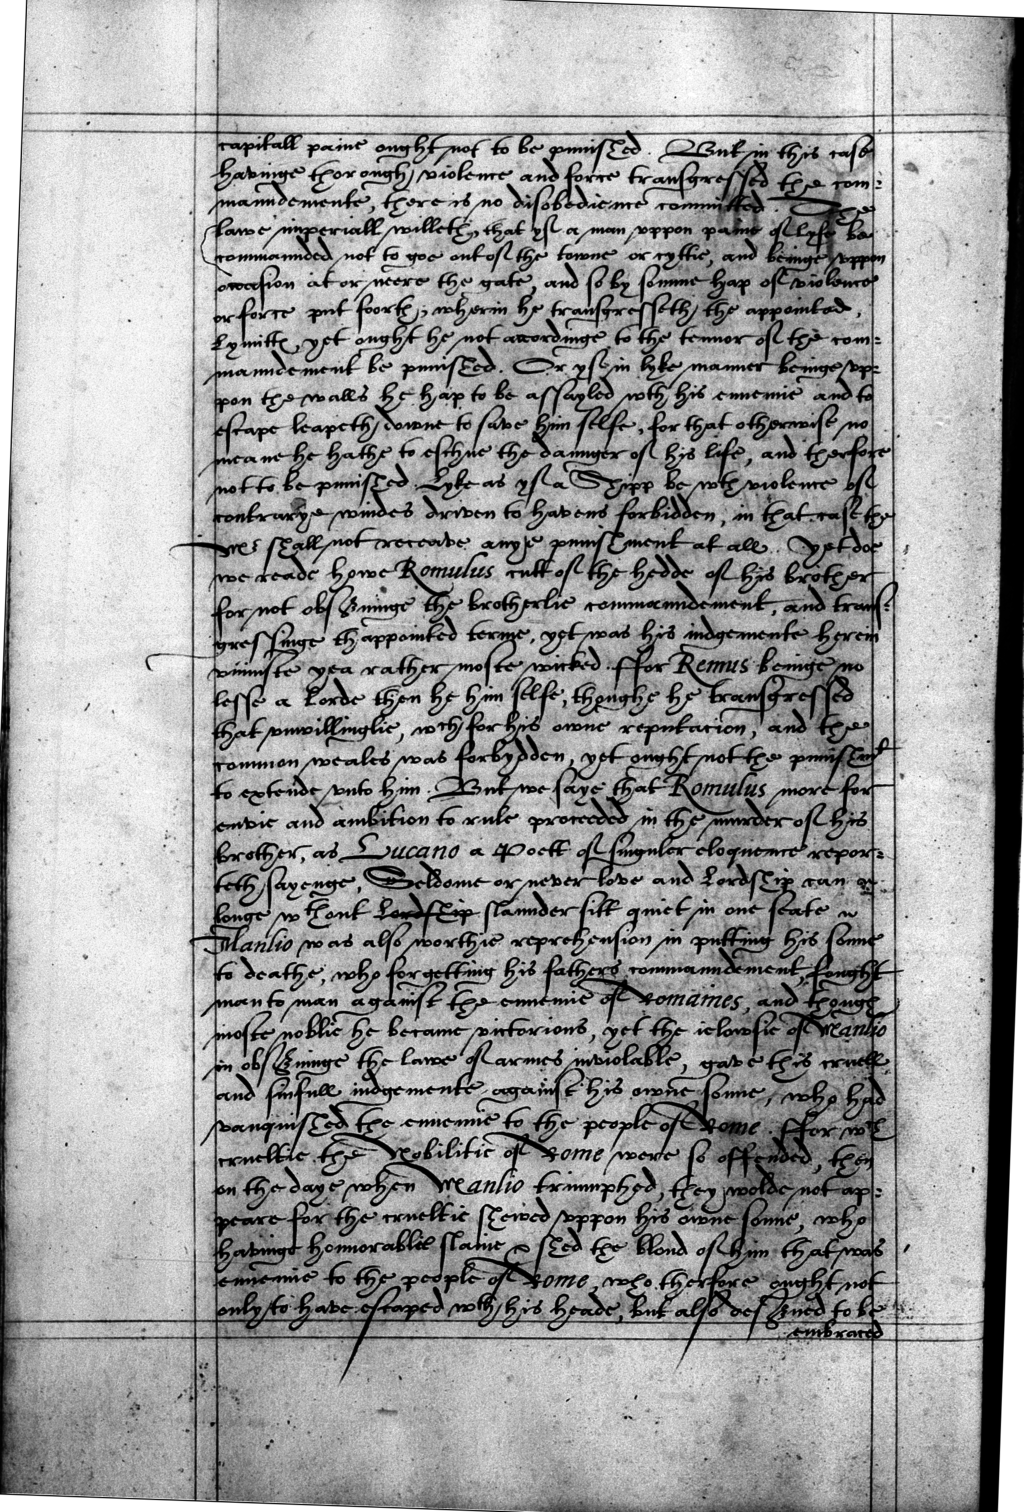 capitall paine ought not to be punished. But in this case
havinge thorough violence and force transgressed the com=
maundemente, there is no disobedience committed. The
lawe imperiall willeth, that yf a man uppon paine of lyfe be
commaunded not to goe out of the towne or cyttie, and beinge uppon
occasion at or neere the gate, and so by somme hap of violence
or force put foorth, wherin he transgresseth the appointed,
Lymitte, yet ought he not accordinge to the tennor of the com=
maundement be punished. Or yf in lyke manner beinge up=
pon the walls he hap to be assayled wth his ennemie and to
escape leapeth downe to save him selfe, for that otherwise no
meane he hathe to eschue the daunger of his life, and therfore
not to be punished. Lyke as yf a Shipp be wth violence of
contrarye windes driven to havens forbidden, in that case the
Mr shall not receave anye punishment at all. Yet doe
we reade howe Romulus cutt of the hedde of his brother
for not observinge the brotherlie commaundement, and trans=
gressinge thappointed terme, yet was his iudgemente herein
uniuste yea rather moste wicked. ffor Remus beinge no
lesse a Lorde then he him selfe, thoughe he transgressed
that unwillinglie, wch for his owne reputacion, and the
common weales was forbydden, yet ought not the punishmt
to extende unto him. But we saye that Romulus more for
envie and ambition to rule proceeded in the murder of his
brother, as Lucano a Poett of singuler eloquence repor=
teth sayenge, Seldome or never love and Lordship can
longe wthout Lordship slaunder sitt quiet in one seate
Manlio was also worthie reprehension in putting his sonne
to deathe, who forgetting his fathers commaundement, fought
man to man against the ennemie of Romaines, and though
moste noblie he became victorious, yet the ielowsie of Manlio
in observinge the lawe of armes inviolable, gave this cruell
and sinfull iudgemente against his owne sonne, who had
vanquished the ennemie to the people of Rome. ffor wch
crueltie the Nobilitie of Rome were so offended, then
on the daye when Manlio triumphed, they wolde not ap=
peare for the crueltie shewed uppon his owne sonne, who
havinge honnorablie slaine & shed the bloud of him that was
ennemie to the people of Rome, who therfore ought not
only to have escaped wth his heade, but also deserved to be
embraced